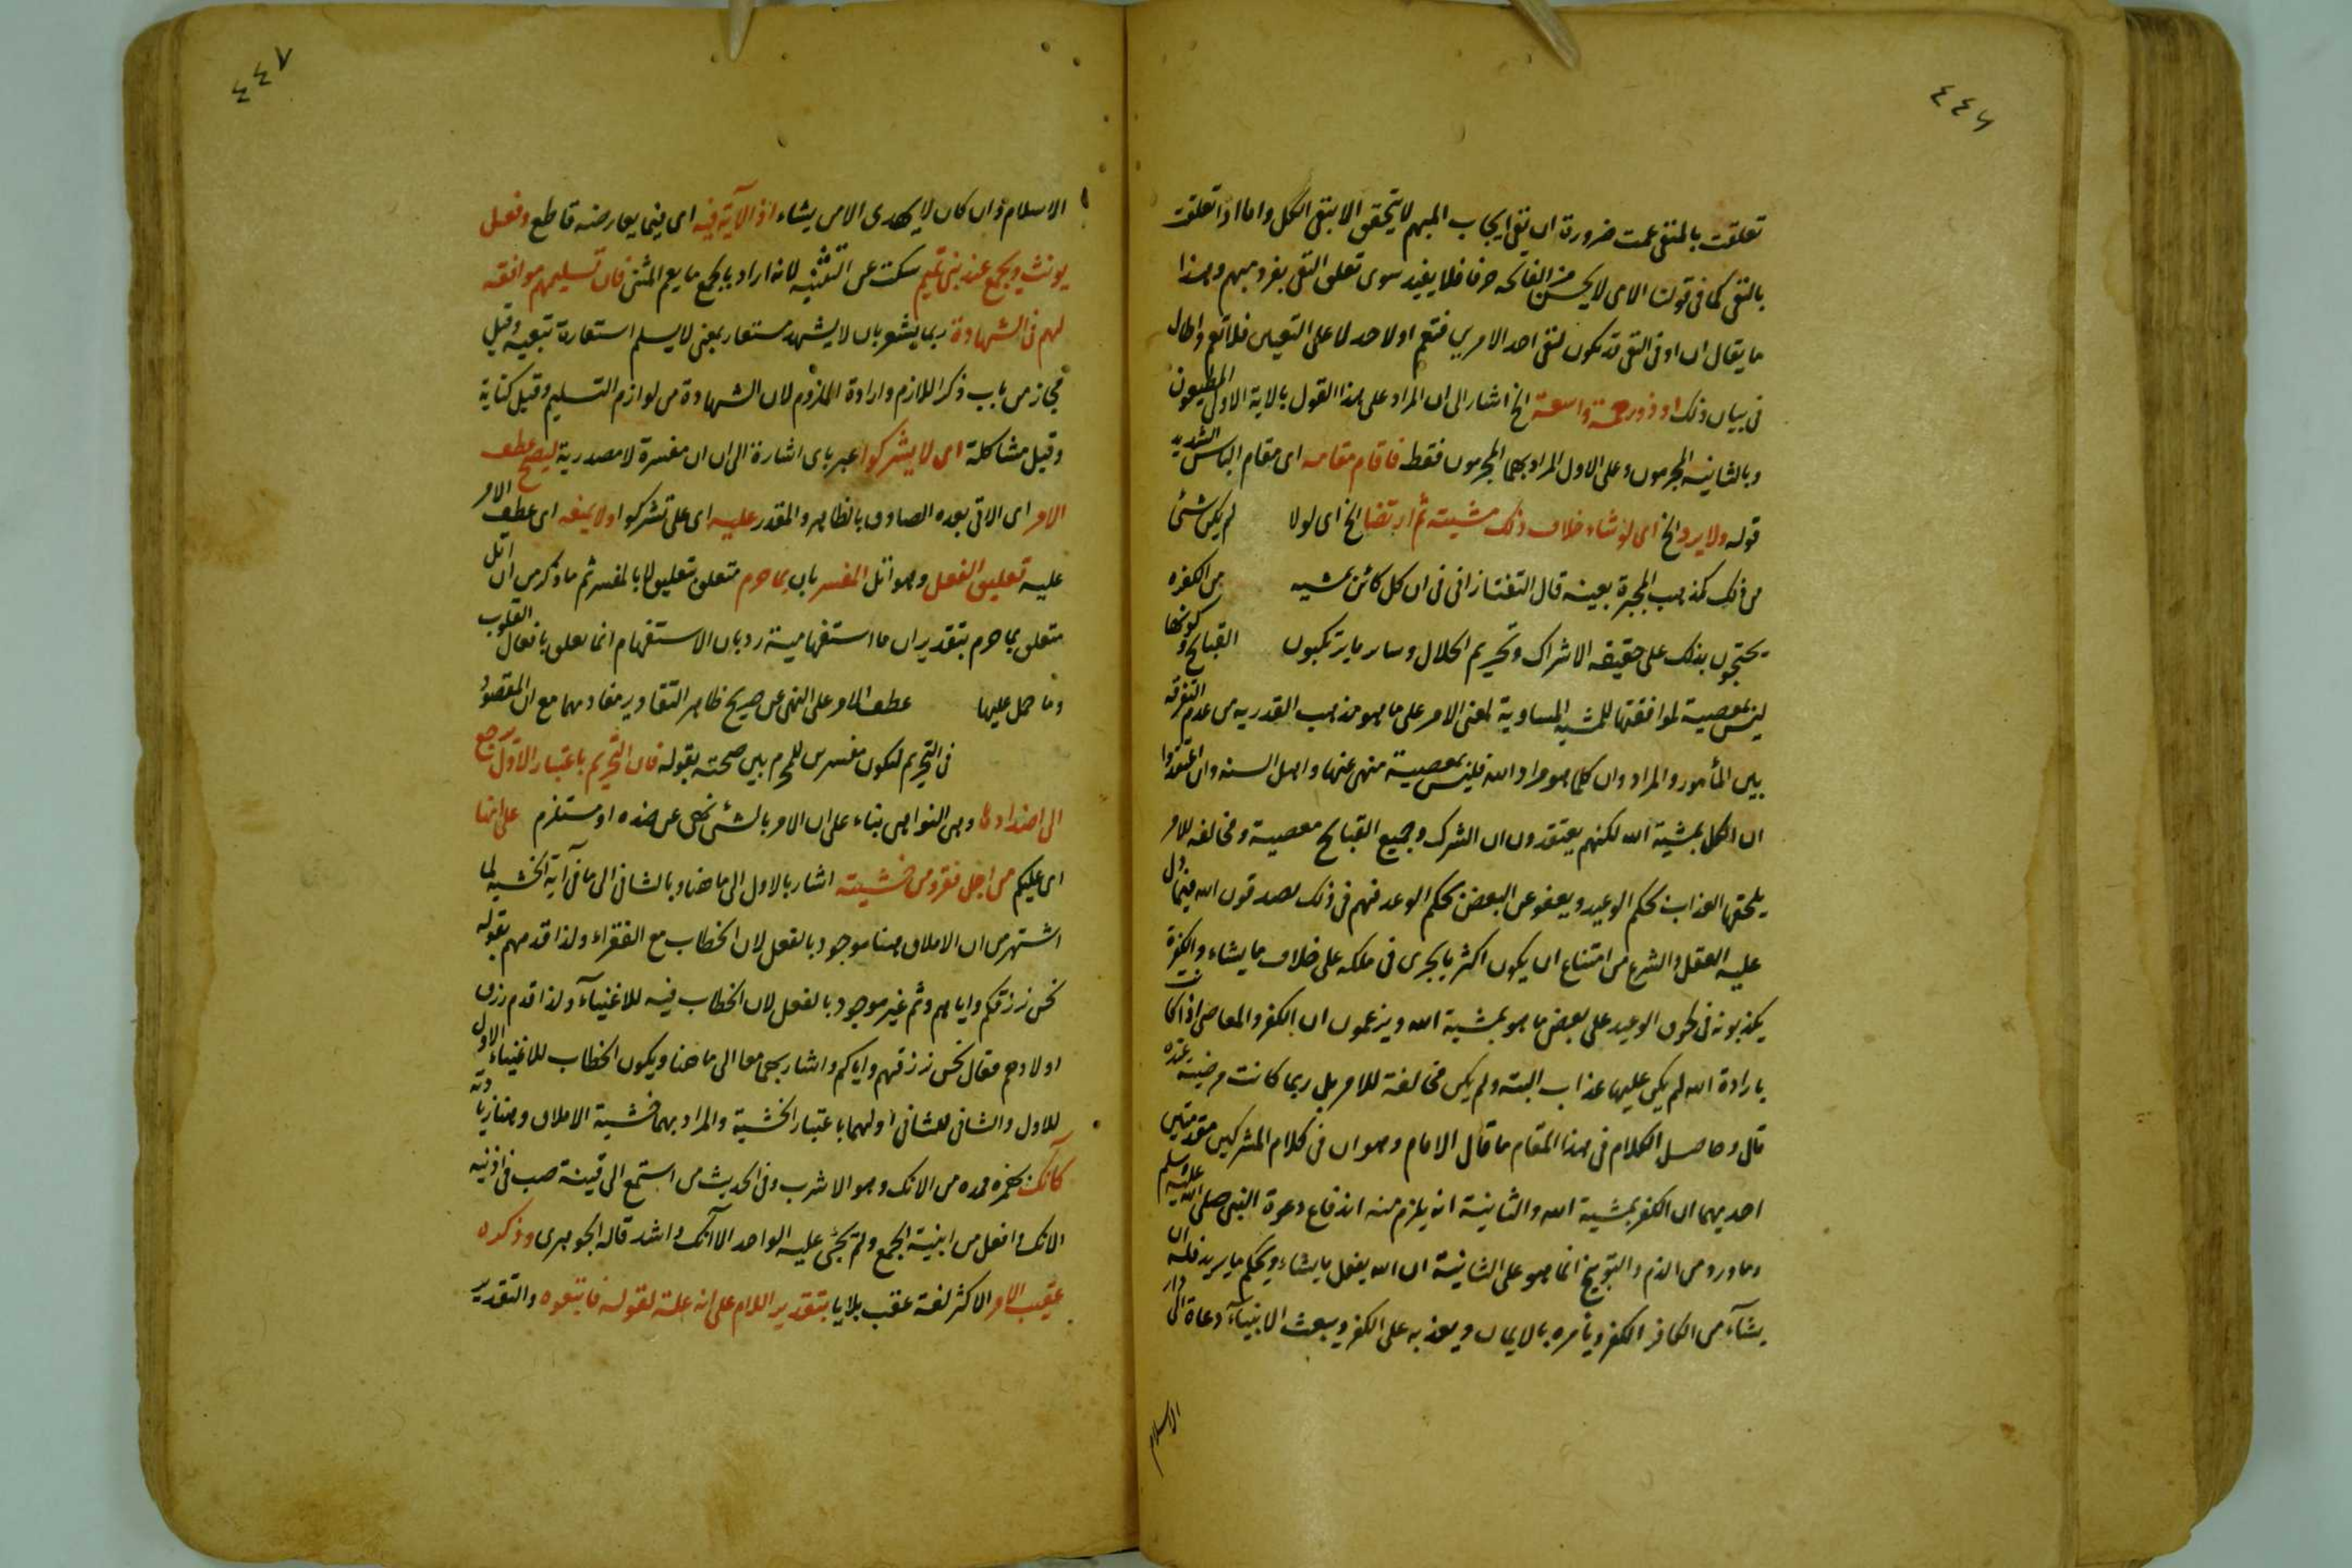 ٤٤٦
تعلقت بالمنفى عمت ضرورة ان نفى ايجاب المبهم لا يتحقق الا بنفى الكل واما اذا تعلقت
بالنفى كما فى قولنا الامى لا يحسن من الفاتحة حرفا فلا يفيد سوى تعلق النفى بفرد مبهم وبهذا
ما يقال ان او فى النفى قد تكون لنفى احد الامرين فتعم او لاحد لا على التعيين فلا تعم واطال
فى بيان ذلك او ذو رحمة واسعة الخ اشار الى ان المراد على هذا القول بالاية الاول المطيعون
وبالثانية المجرمون وعلى الاول المراد بهما المجرمون فقط فاقام مقامه اى مقام الباس الشديد
قوله ولا يرد الخ اى لو شاء خلاف ذلك مشيئة ثم ارتضا الخ اى لولا لم يكن شئ
من ذلك كمذهب المجبرة بعينه قال التفتازانى فى ان كل كائن بمشيه من الكفره
يحتجون بذلك على حقيقه الاشراك وتحريم الحلال وساىر ما يرتكبون القبايح وكونها
ليس بمعصية لموافقتها للمشيه المساوية لمعنى الامر على ما هو مذهب القدريه من عدم التفرقه
بين المأمور والمراد وان كلما هو مراد الله فليس بمعصية منهى عنها واهل السنه وان اعتقدوا
ان الكل بمشية الله لكنهم يعتقدون ان الشرك وجميع القبايح معصية ومخالفه للامر
يلحقها العذاب بحكم الوعيد ويعفو عن البعض بحكم الوعد فهم فى ذلك يصدقون الله فيما دل
عليه العقل والشرع من امتناع ان يكون اكثر ما يجرى فى ملكه على خلاف ما يشاء والكفرة
يكذبونه فى لحوق الوعيد على بعض ما هو بمشية الله ويزعمون ان الكفر والمعاصى اذا كانت
بارادة الله لم يكن عليها عذاب البته ولم يكن مخالفة للامر بل ربما كانت مرضيه عنده
قال وحاصل الكلام فى هذا المقام ما قال الامام وهو ان فى كلام المشركين مقدمتين
احديهما ان الكفر بمشية الله والثانية انه يلزم منه اندفاع دعوة النبى صلى الله عليه وسلم
وما ورد من الذم والتوبيخ انما هو على الثانية ان الله يفعل ما يشاء ويحكم ما يريد فله ان
يشآء من الكافر الكفر ويأمره بالايمان ويعذبه على الكفر ويبعث الانبيآء دعاة الى دار
الاسلام
٤٤٧
الاسلام وان كان لا يهدى الا من يشاء اذ الآية فيه اى فيما يعارضه قاطع وفعل
يونث ويجمع عند بنى تميم سكت عن التثنيه لانه اراد بالجمع ما يعم المثنى فان تسليمهم موافقه
لهم فى الشهادة ربما يشعر بان لا يشهد مستعار بمعنى لا يسلم استعارة تبعيه وقيل
مجاز من باب ذكر اللازم وارادة الملزوم لان الشهادة من لوازم التسليم وقيل كناية
وقيل مشاكلة اى لا يشركوا عبر باى اشارة الى ان ان مفسرة لا مصدرية ليصح عطف
الامر اى الاتى بعده الصادق بالظاهر والمقدر عليه اى على تشركوا ولا يمنعه اى عطف الامر
عليه تعليق الفعل وهو اتل المفسر بان بما حرم متعلق بتعليق لا بالمفسر ثم ما ذكر من ان اتل
متعلق بما حرم بتقدير ان ما استفهامية رد بان الاستفهام انما يعلق بافعال القلوب
وما حمل عليها عطف الامر على النهى عن صريح ظاهر التقادير مفادهما مع ان المقصود
فى التحريم لكون مفسرين للمحرم بين صحته بقوله فان التحريم باعتبار الاول يرجع
الى اضدادها وهى النواهى بناء على ان الامر بالشئ نهى عن ضده او مستلزم على انها
اى عليكم من اجل فقر ومن خشيته اشار بالاول الى ما هنا وبالثانى الى ما فى آية الخشيه لما
اشتهر من ان الاملاق هنا موجود بالفعل لان الخطاب مع الفقراء ولذا قدمهم بقوله
نحن نرزقكم واياهم وثم غير موجود بالفعل لان الخطاب فيه للاغنيآء ولذا قدم رزق
اولادهم فقال نحن نرزقهم واياكم واشار بهما معا الى ما هنا ويكون الخطاب للاغنياء الاول
للاول والثانى للثانى او لهما باعتبار الخشية والمراد بهما خشية الاملاق وهنا زيادته
كآنك بضمزه فمده من الانك وهو الاشرب وفى الحديث من استمع الى قينة صب فى اذنيه
الانك وافعل من ابنية الجمع ولم يجئ عليه الواحد الا آنك واشد قاله الجوهرى وذكره
عقيب الامر الاكثر لغة عقب بلا يا بتقدير اللام على انه علة لقوله فاتبعوه والتقدير